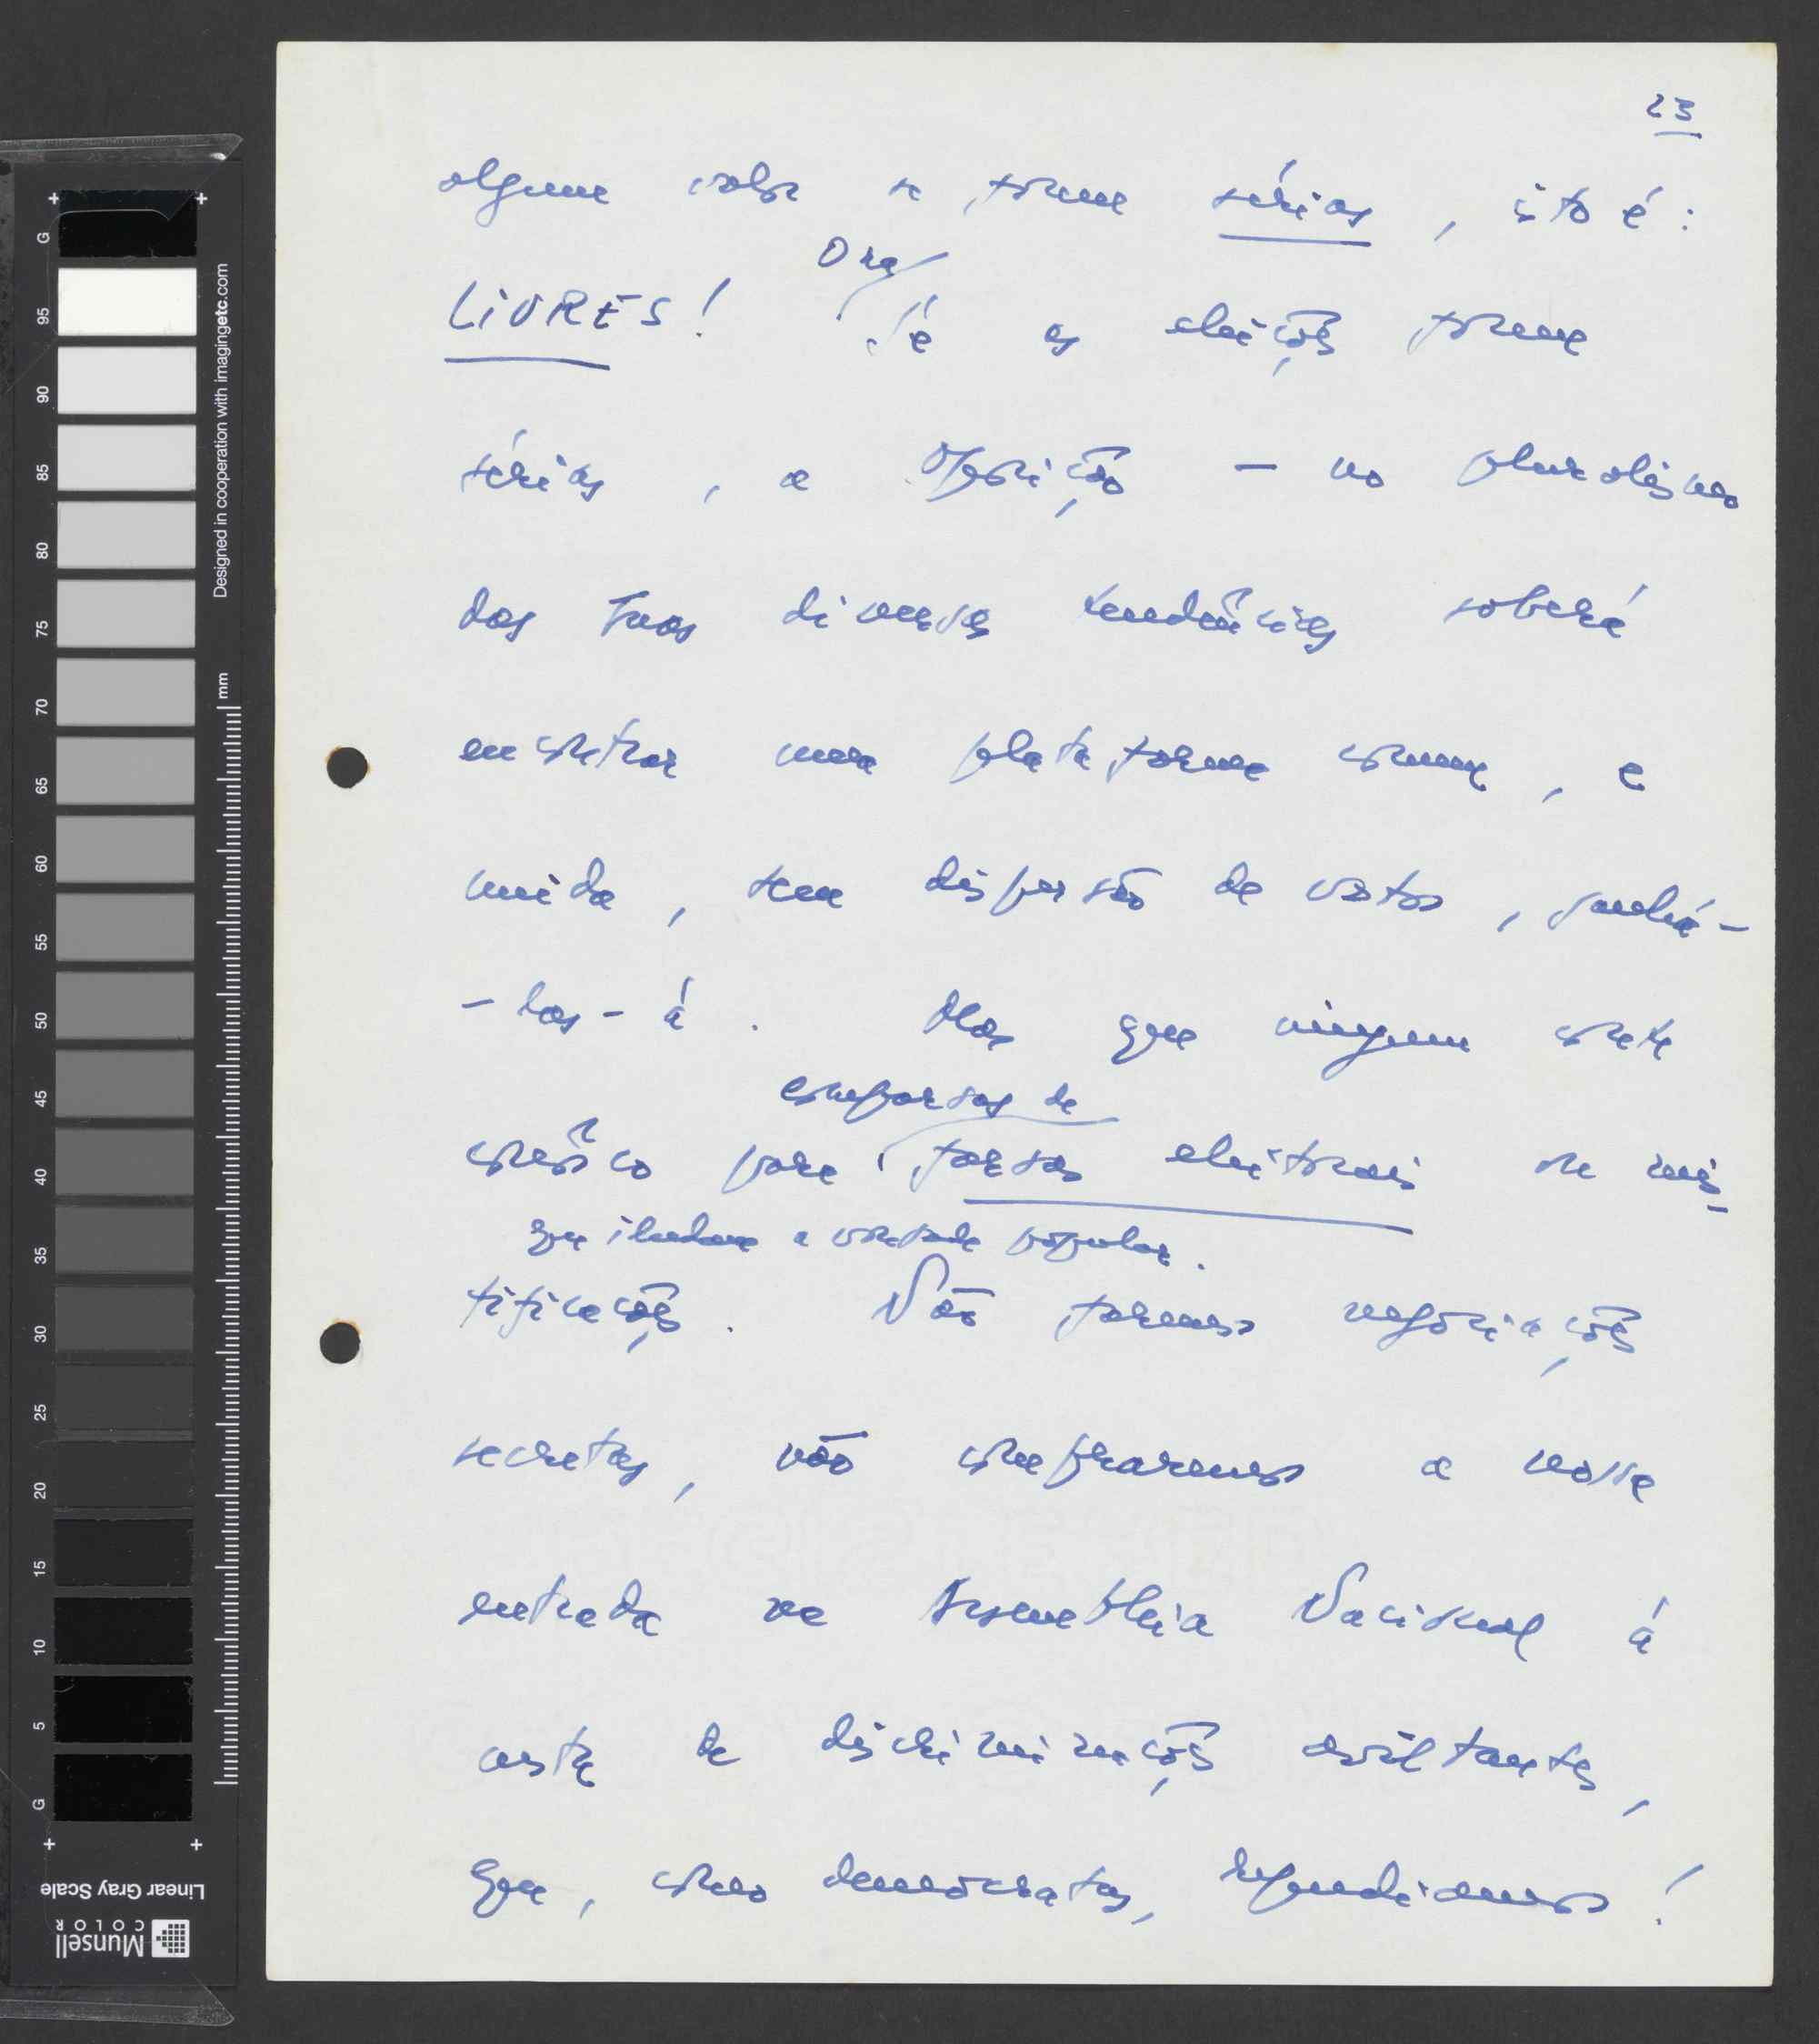 23
algum valor se forem sérias, isto é:
LIVRES! Ora se as eleições forem
sérias, a oposição — no pluralismo
das suas diversas tendências saberá
encontrar uma plataforma comum, e
unida, sem dispersão de votos, ganhá-
-las-á. Mas que ninguem conte
comparsas de
conôsco para farsas eleitorais ou mis-
que iludam a vontade popular.
tificações. Não faremos negociações
secretas, não compraremos a nossa
entrada na Assembleia Nacional á
custa de discriminações aviltantes,
que, como democratas, repudiamos!
G 95 90 85 80 75 70 65 60 55 50 45 40 35 30 25 20 15 10 5 G
Designed in cooperation with imagingetc.com
mm
Linear Gray Scale
Munsell
COLOR